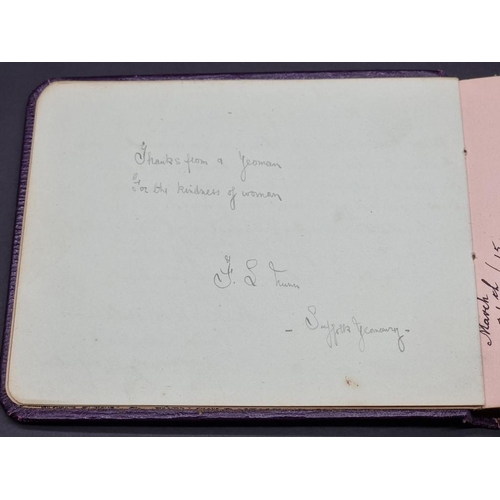 Thanks from a Yeoman
For the kindness of women
F. L.
- Suffolk Yeomanry -
March
/15